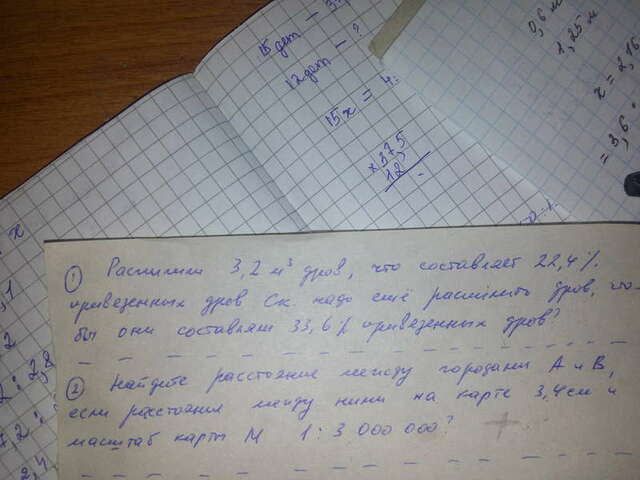 15 дет - 3
12 дет - ?
15x = 4
× 37,5
12
0,6 м
1,25 м
x = 2,16
= 3,6 :
x
① Распилили 3,2 м³ дров, что составляет 22,4%
привезенных дров Ск. надо ещё распилить дров, что-
бы они составляли 33,6% привезенных дров?
② Найдите расстояние между городами А и В,
если расстояние между ними на карте 3,4 см и
масштаб карты М 1 : 3 000 000?